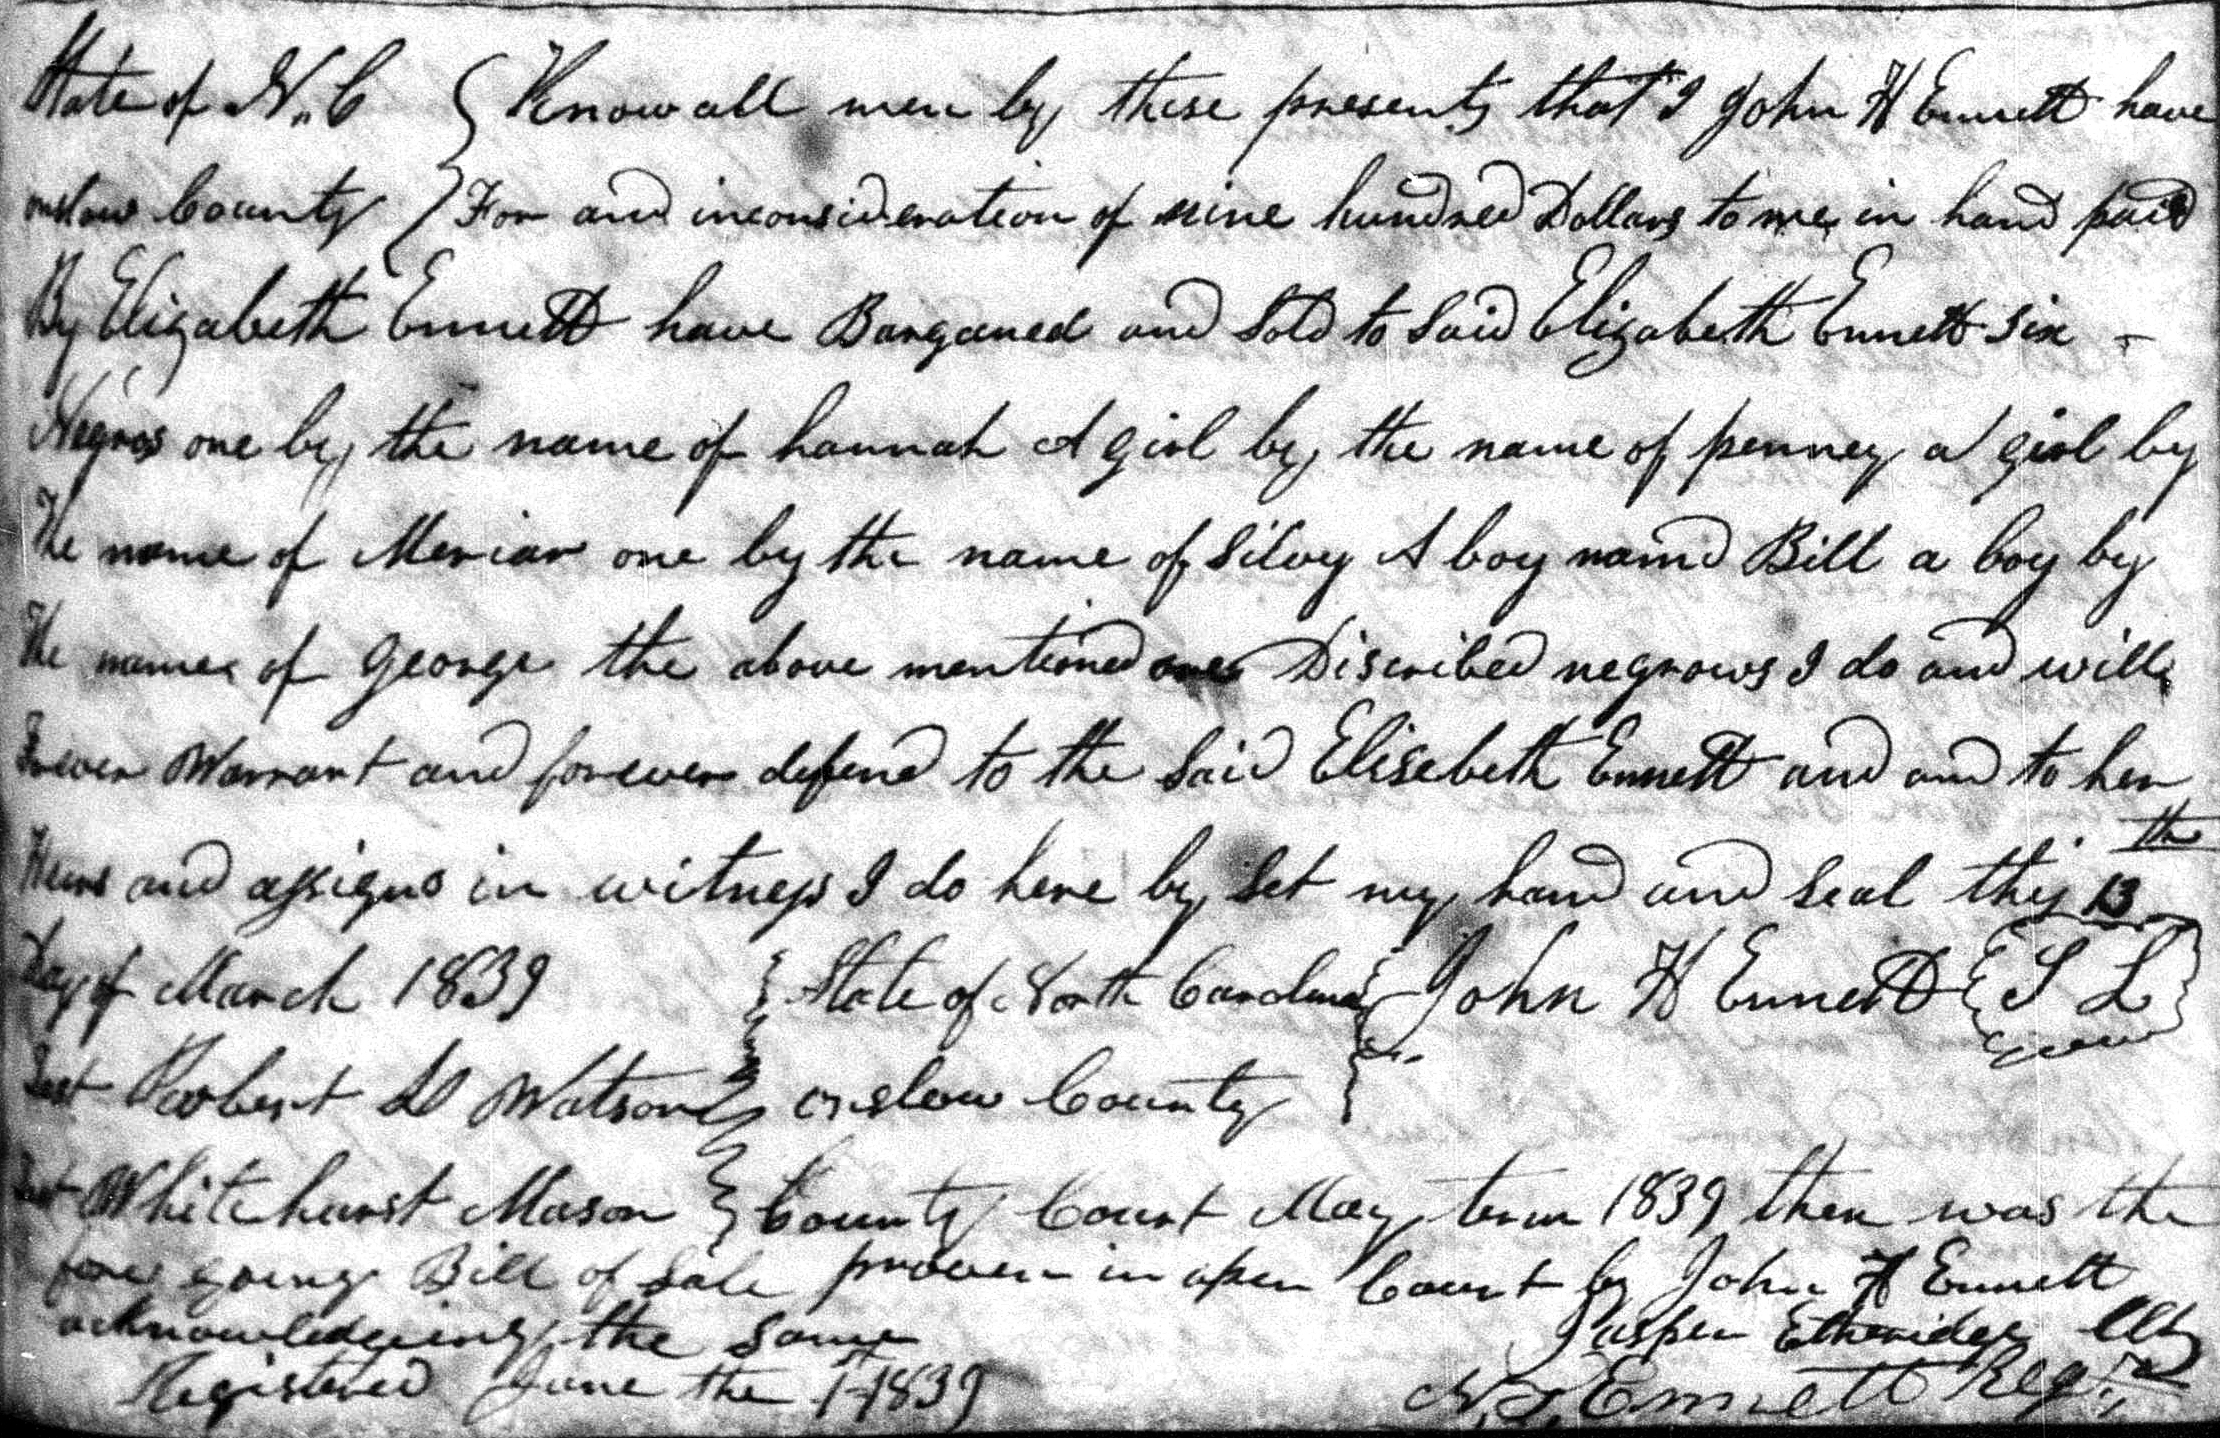 State of N.C { Know all men by these presents that I John H Ennett have
onslow County } For and inconsideration of nine hundred Dollars to me in hand paid
By Elizabeth Ennett have Barganed and Sold to Said Elizabeth Ennett six -
Negros one by the name of hannah A girl by the name of penney a girl by
The name of Meriar one by the name of Silvy A boy namd Bill a boy by
The name of George the above mentioned Discribed negrows I do and will
Forever Warrant and forever defend to the Said Elisebeth Ennett and and to her
Heirs and assigns in witness I do here by Set my hand and Seal this 13th
Day of March 1839 } State of North Carolina } John H Ennett { S L }
Test Robert D Watson } onslow County }
Test Whitehurst Mason } County Court May term 1839 then was the
fore going Bill of Sale proven in open Court by John H Ennett
acknowledgeing the same Jasper Etheridge Clk
Registered June the 1st 1839 N. Ennett Reg